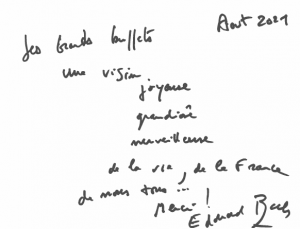 Août 2021
Les Grands Buffets
une vision
joyeuse
grandiose
merveilleuse
de la vie, de la France
de nous tous ...
Merci !
Edouard